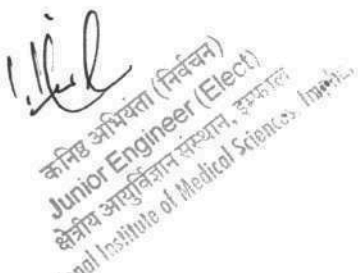 कनिष्ठ अभियंता (निर्वचन)
Junior Engineer (Elect)
क्षेत्रीय आयुर्विज्ञान संस्थान, इम्फाल
Institute of Medical Sciences, Imphal